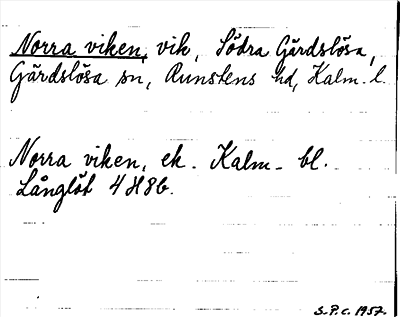 Norra viken, vik, Södra Gärdslösa,
Gärdslösa sn, Runstens hd, Kalm. l.
Norra viken, ek. Kalm. bl.
Långlöt 4H8b.
S.P.C. 1957.